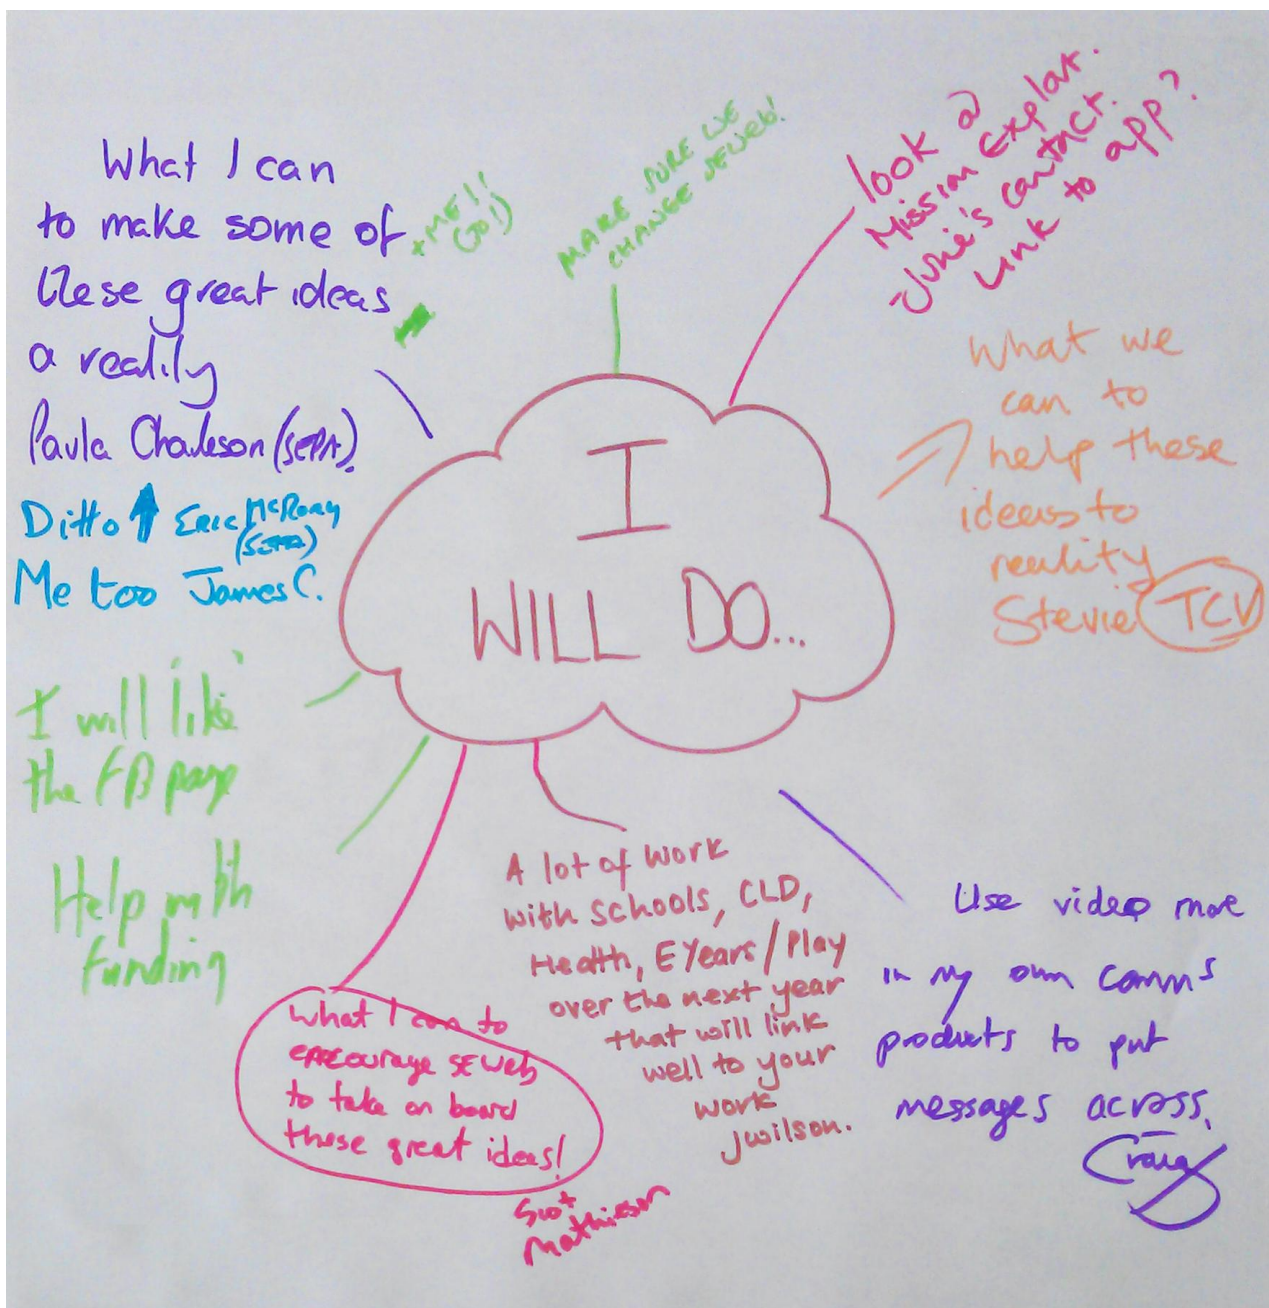 I
WILL DO...
What I can
to make some of
these great ideas
a reality
Paula Charleson (SEPA).
+ ME!!
(JO!)
Ditto Eric McRory
(SEPA)
Me too James C.
MAKE SURE WE
CHANGE SEWeb!
look @
Mission Explore.
June's contact.
Link to app?
What we
can to
help these
ideas to
reality
Stevie TCV
I will 'like'
the FB page
Help with
funding
What I can to
encourage SEWeb
to take on board
these great ideas!
Scot
Mathieson
A lot of work
with schools, CLD,
Health, EYears/Play
over the next year
that will link
well to your
work
jwilson.
Use video more
in my own comms
products to put
messages across.
Craig